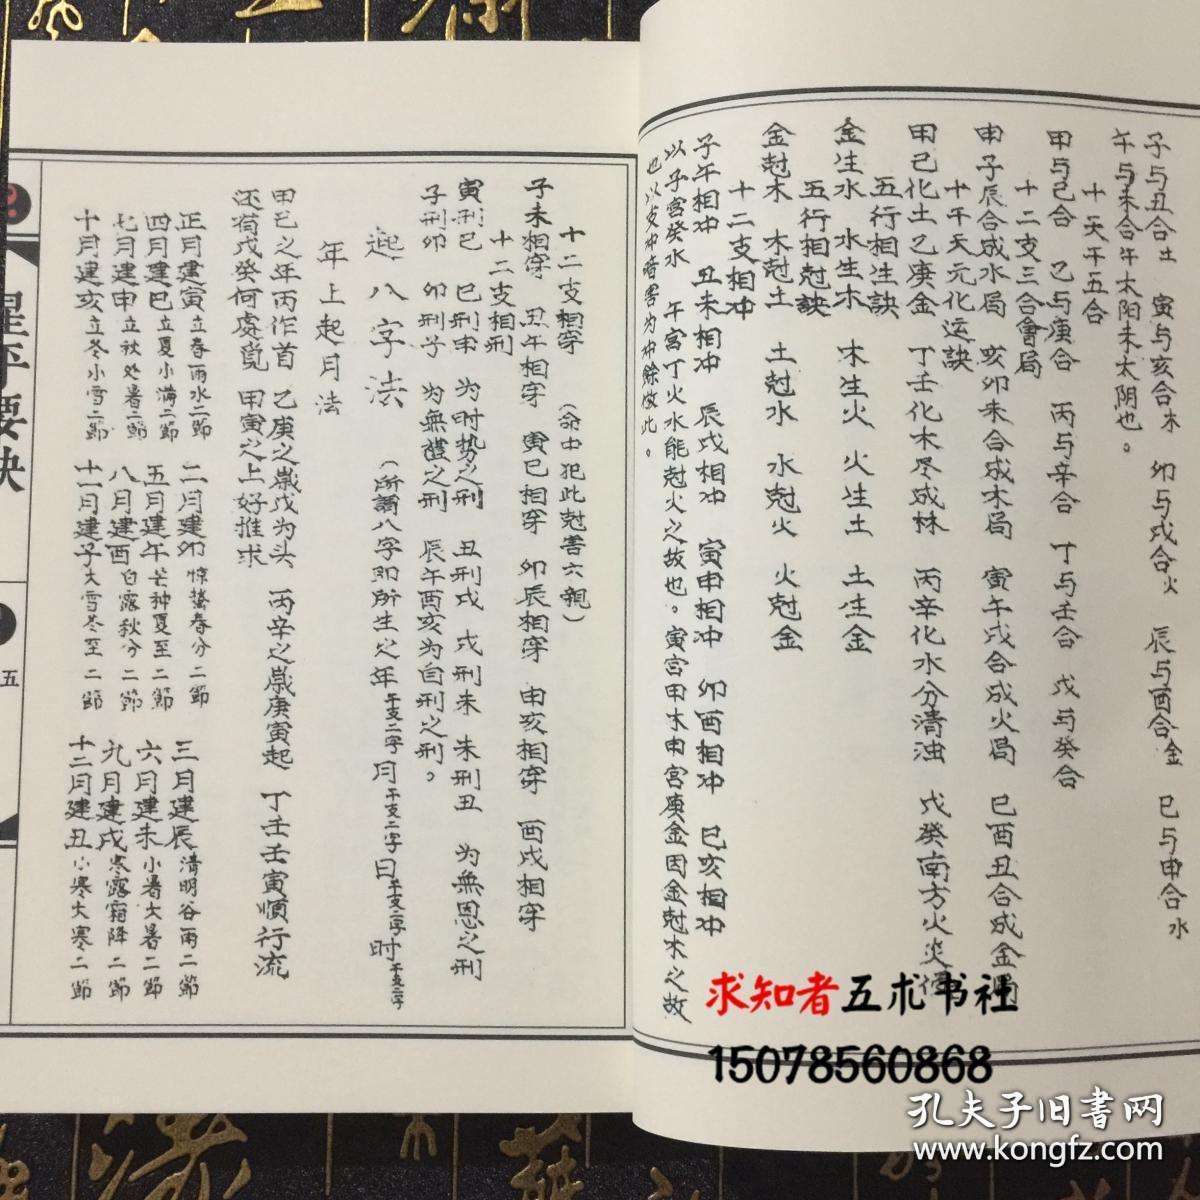 子与丑合土 寅与亥合木 卯与戌合火 辰与酉合金 巳与申合水
午与未合午太阳未太阴也。
十天干五合
甲与己合 乙与庚合 丙与辛合 丁与壬合 戊与癸合
十二支三合會局
申子辰合成水局 亥卯未合成木局 寅午戌合成火局 巳酉丑合成金局
十干天元化运訣
甲己化土乙庚金 丁壬化木尽成林 丙辛化水分清浊 戊癸南方火炎
五行相生訣
金生水 水生木 木生火 火生土 土生金
五行相尅訣
金尅木 木尅土 土尅水 水尅火 火尅金
十二支相冲
子午相冲 丑未相冲 辰戌相冲 寅申相冲 卯酉相冲 巳亥相冲
以子宫癸水 午宫丁火水能尅火之故也。寅宫甲木申宫庚金因金尅木之故
也以支冲暗害为冲馀倣此。
十二支相穿 (命中犯此尅害六親)
子未相穿 丑午相穿 寅巳相穿 卯辰相穿 申亥相穿 酉戌相穿
十二支相刑
寅刑巳 巳刑申 为时势之刑 丑刑戌 戌刑未 未刑丑 为無恩之刑
子刑卯 卯刑子 为無禮之刑 辰午酉亥为自刑之刑。
起八字法 (所謂八字即所生之年干支二字月干支二字日干支二字时干支二字
年上起月法
甲己之年丙作首 乙庚之歲戊为头 丙辛之歲庚寅起 丁壬壬寅順行流
还有戊癸何處覓 甲寅之上好推求
正月建寅立春雨水二節 二月建卯惊蟄春分二節 三月建辰清明谷雨二節
四月建巳立夏小满二節 五月建午芒种夏至二節 六月建未小暑大暑二節
七月建申立秋处暑二節 八月建酉白露秋分二節 九月建戌寒露霜降二節
十月建亥立冬小雪二節 十一月建子大雪冬至二節 十二月建丑小寒大寒二節
星平要訣
五
求知者五术书社
15078560868
孔夫子旧書网
www.kongfz.com